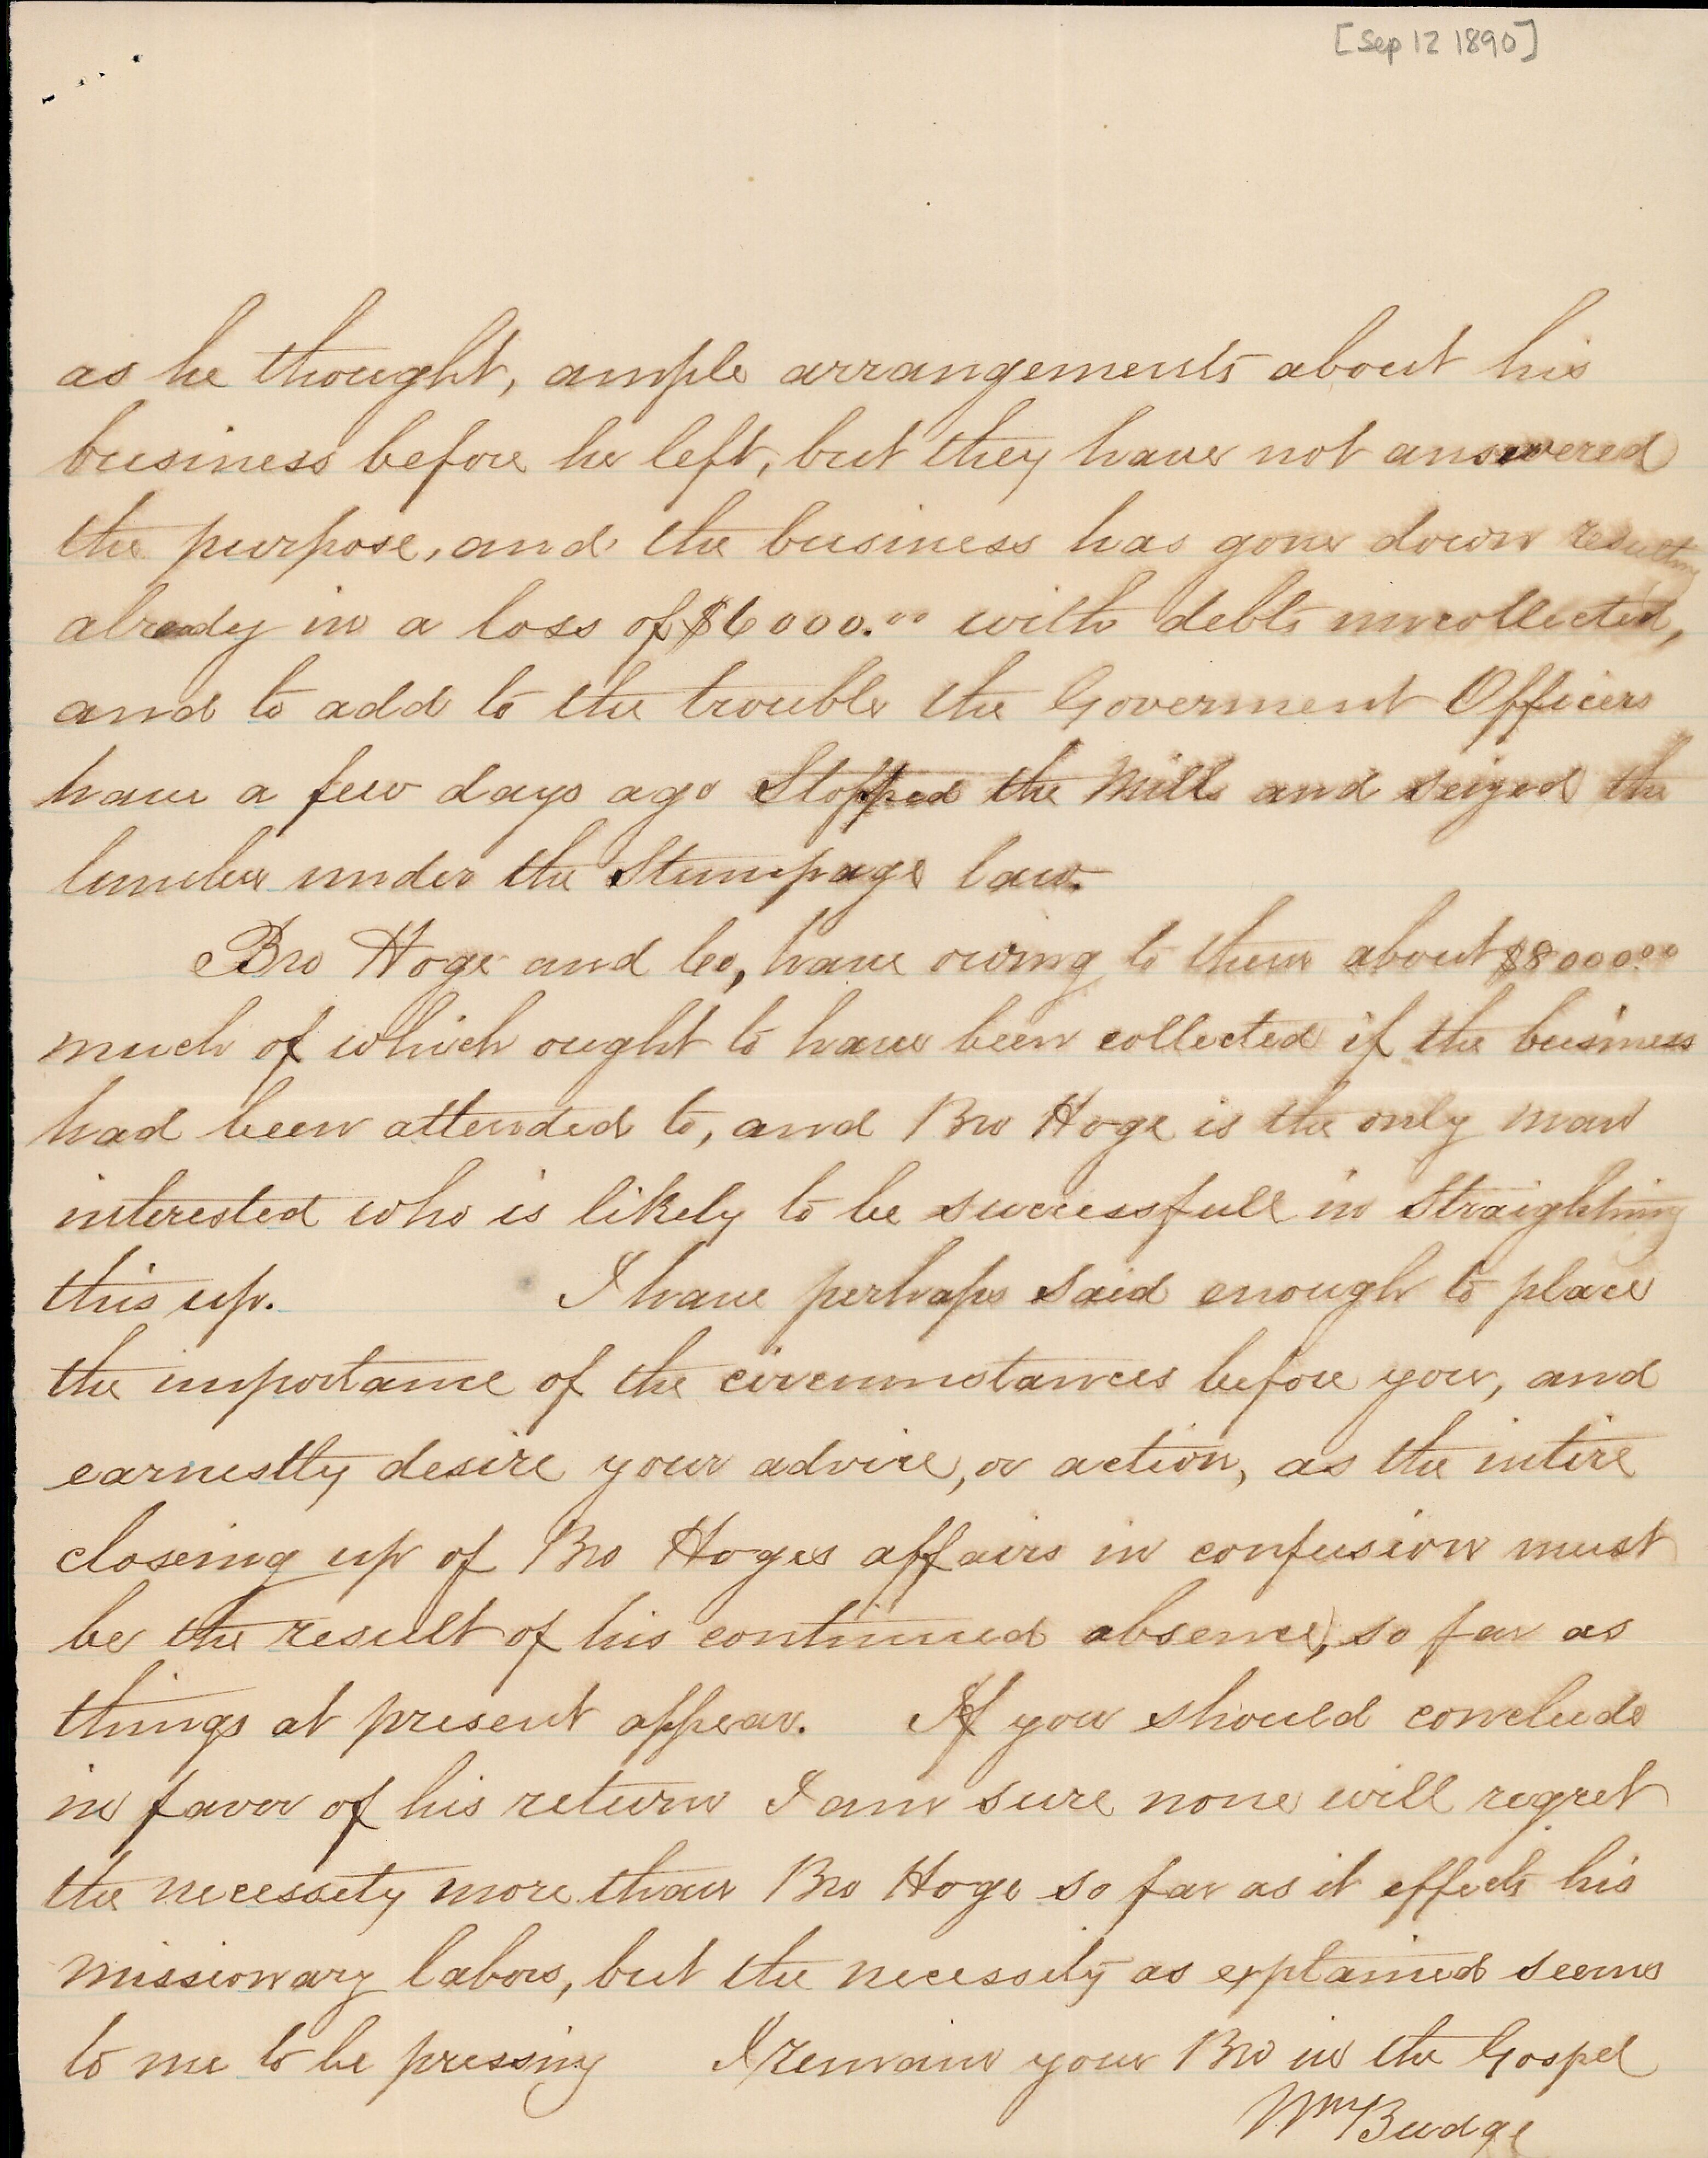 [Sep 12 1890]
as he thought, ample arrangements about his
business before he left, but they have not answered
the purpose, and the business has gone down resulting
already in a loss of $6000.00 with debts uncollected,
and to add to the trouble the Goverment Officers
have a few days ago Stopped the Mills and seized the
lumber under the Stumpage law.
Bro Hoge and Co, have owing to them about $8000.00
much of which ought to have been collected if the business
had been attended to, and Bro Hoge is the only man
interested who is likely to be successfull in Straightning
this up. I have perhaps said enough to place
the importance of the circumstances before you, and
earnestly desire your advice, or action, as the intire
closeing up of Bro Hoges affairs in confusion must
be the result of his continued absence, so far as
things at present appear. If you should conclude
in favor of his return I am sure none will regret
the necessety more than Bro Hoge so far as it effects his
missionary labors, but the necessity as explained seems
to me to be pressing I remain your Bro in the Gospel
Wm Budge